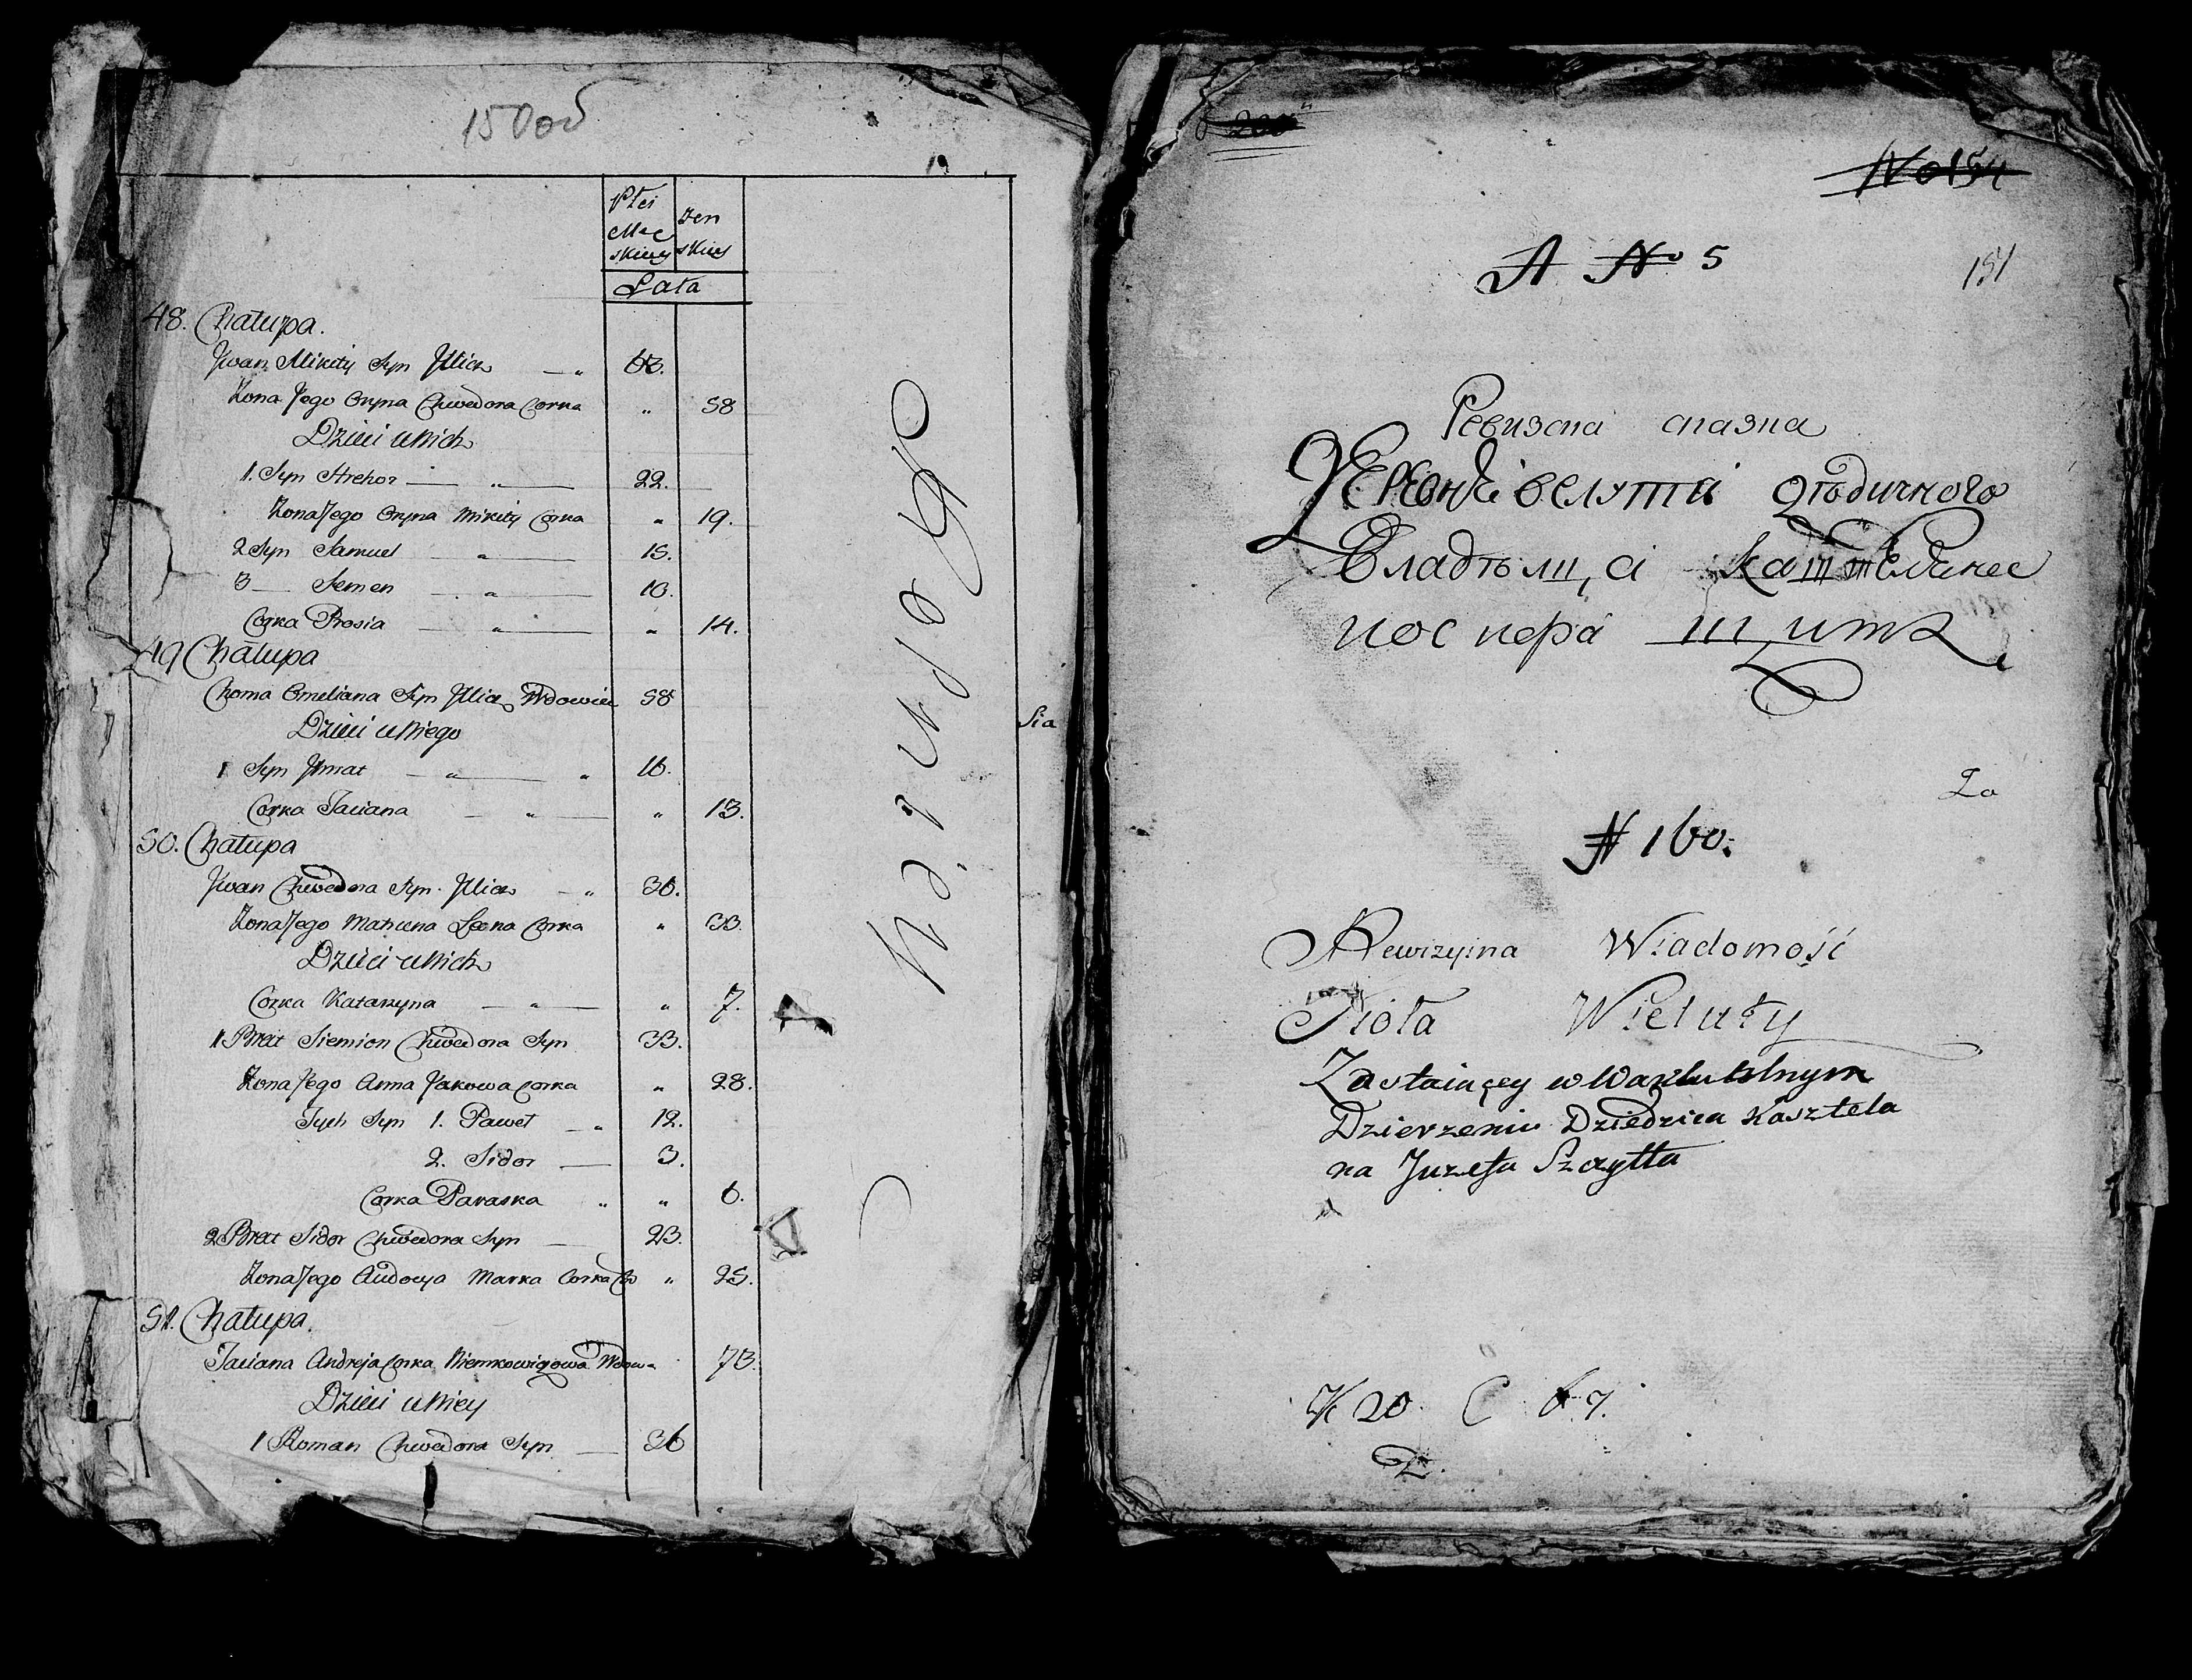 150об
Płci
Męskiey
Żenskiey
Lata
48. Chałupa.
Jwan Mikity Syn Jllicz 63.
Żona Jego Oryna Chwedora Corka " 58
Dzieci u Nich
1. Syn Hrehor " 22.
Żona Jego Oryna Mikity Corka " 19.
2 Syn Samuel " 15.
3 Semen " 10.
Corka Prosia " " 14.
49 Chałupa
Choma Omeliana Syn Jllicz Wdowiec 58
Dzieci u Niego
1 Syn Jhnat " " 16.
Corka Taciana " " 13.
50. Chałupa
Jwan Chwedora Syn Jllicz " 36.
Żona Jego Matruna Leona Corka " 33.
Dzieci u Nich
Corka Katarzyna " " 7.
1 Brat Siemion Chwedora Syn 33.
Żona Jego Anna Jakowa Corka " 28.
Tych Syn 1. Paweł " 12.
2. Sidor 3.
Corka Paraska " " 6.
2 Brat Sidor Chwedora Syn 23.
Żona Jego Audocya Marka Corka " 25.
51. Chałupa.
Taciana Andreja Corka Niemkowiczowa Wdowa 73.
Dzieci u Niey
1 Roman Chwedora Syn 36
Sia
200
No 154
A No 5
151
Ревизска сказка
велути
Владѣлца
Za
N 160.
Rewizyina Wiadomość
Sioła Wieluty
Zostaiącey w
Dzierzeniu Dziedzica Kasztela
na Juzefa Szczytta
20. C 67.